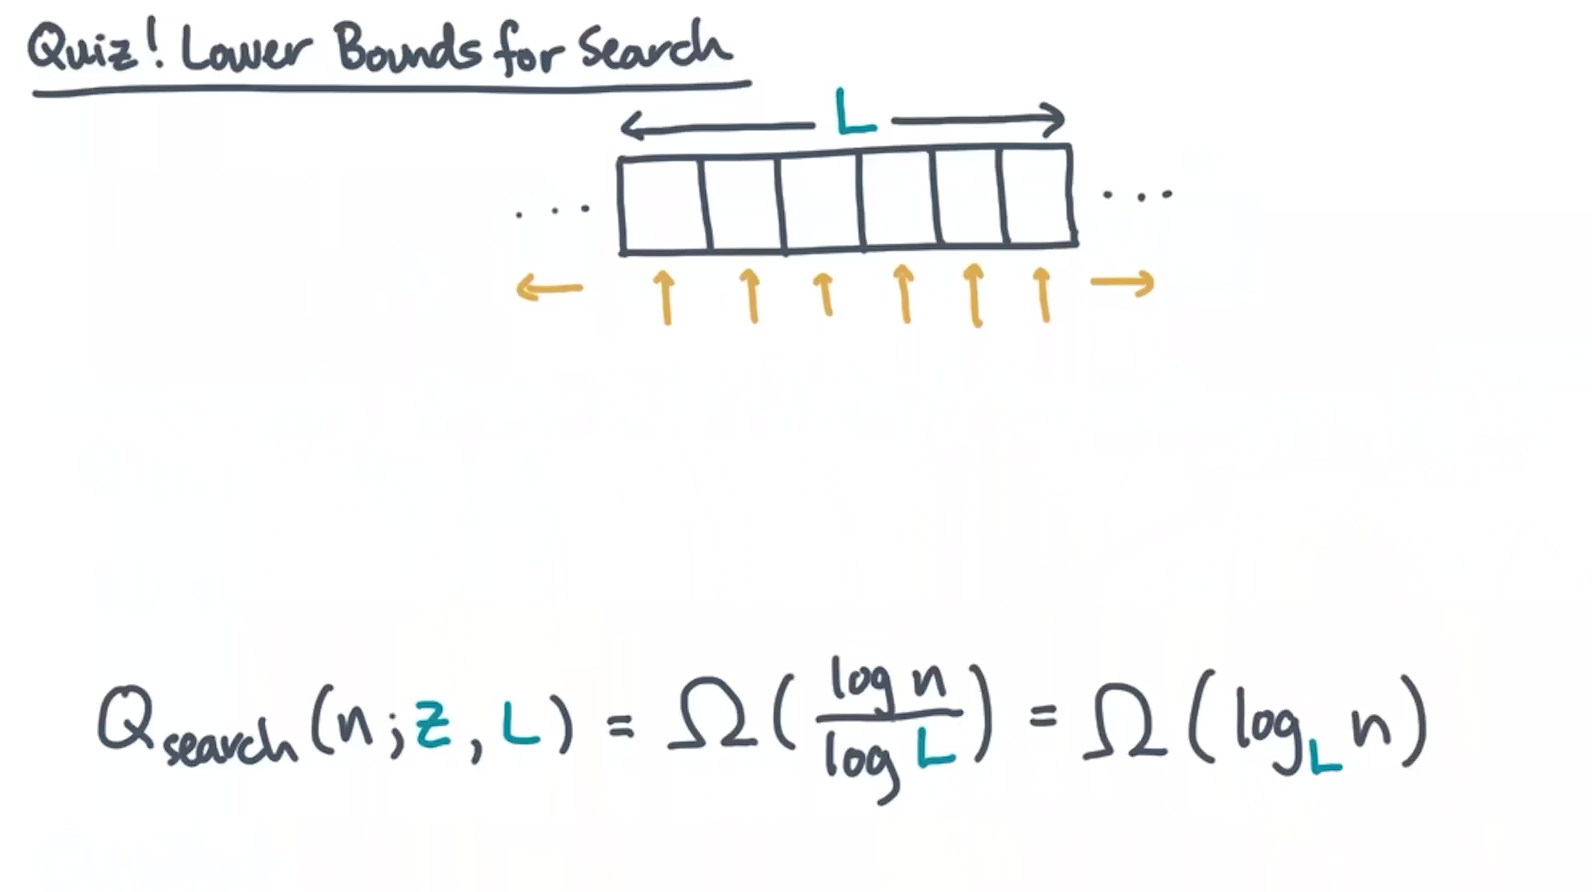 Quiz! Lower Bounds for Search
L
... ...
Q search (n; Z, L) = Ω(log n / log L) = Ω(log_L n)